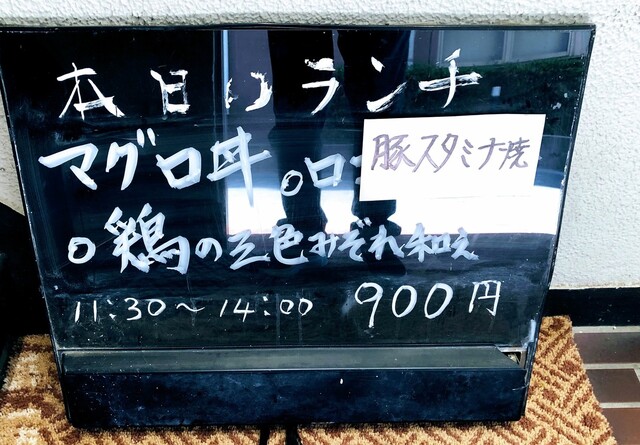 本日のランチ
マグロ丼 。ロ 豚スタミナ焼
。鶏の三色みぞれ和え
11:30～14:00 900円